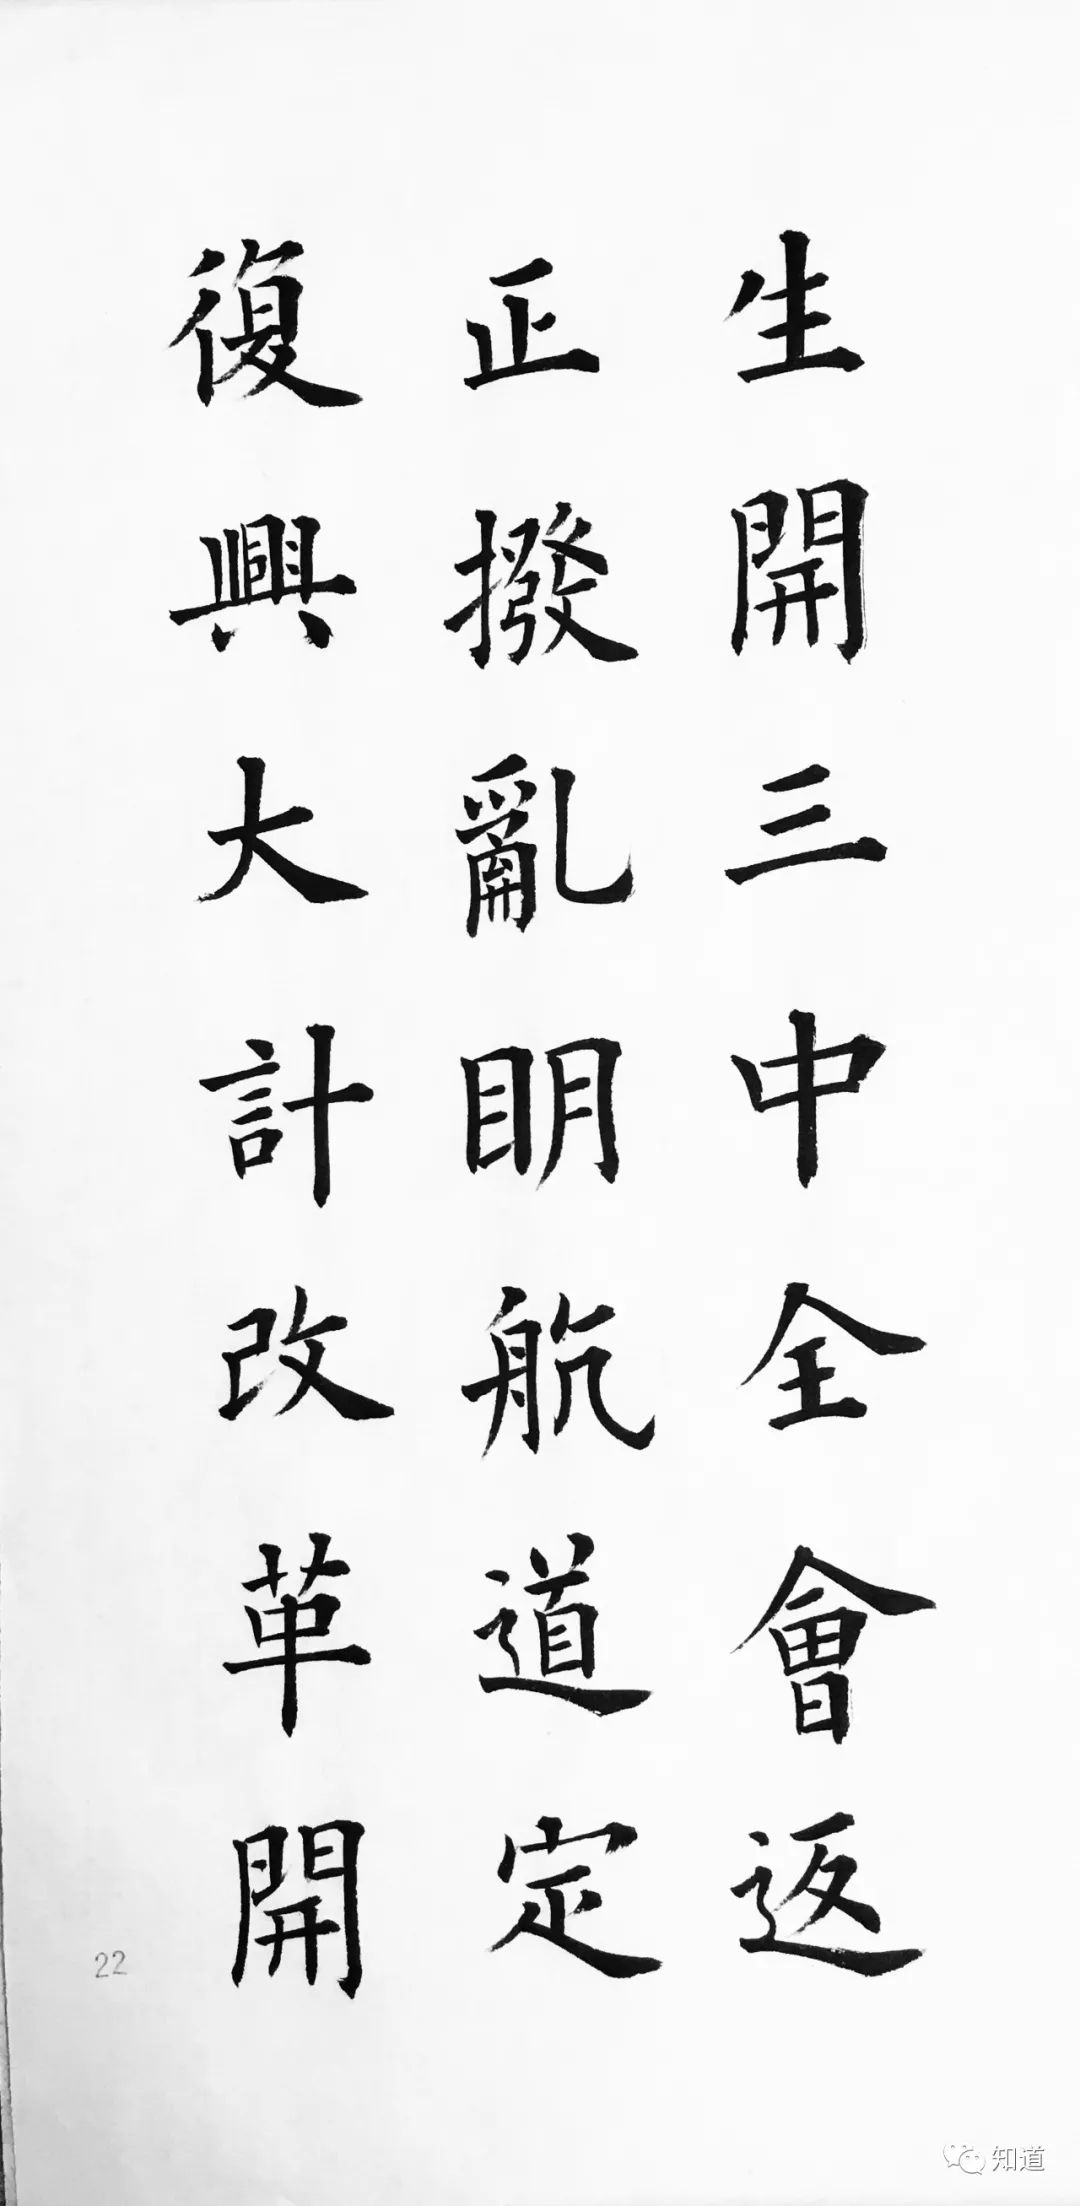 生開三中全會返
正撥亂明航道定
復興大計改革開
22
知道